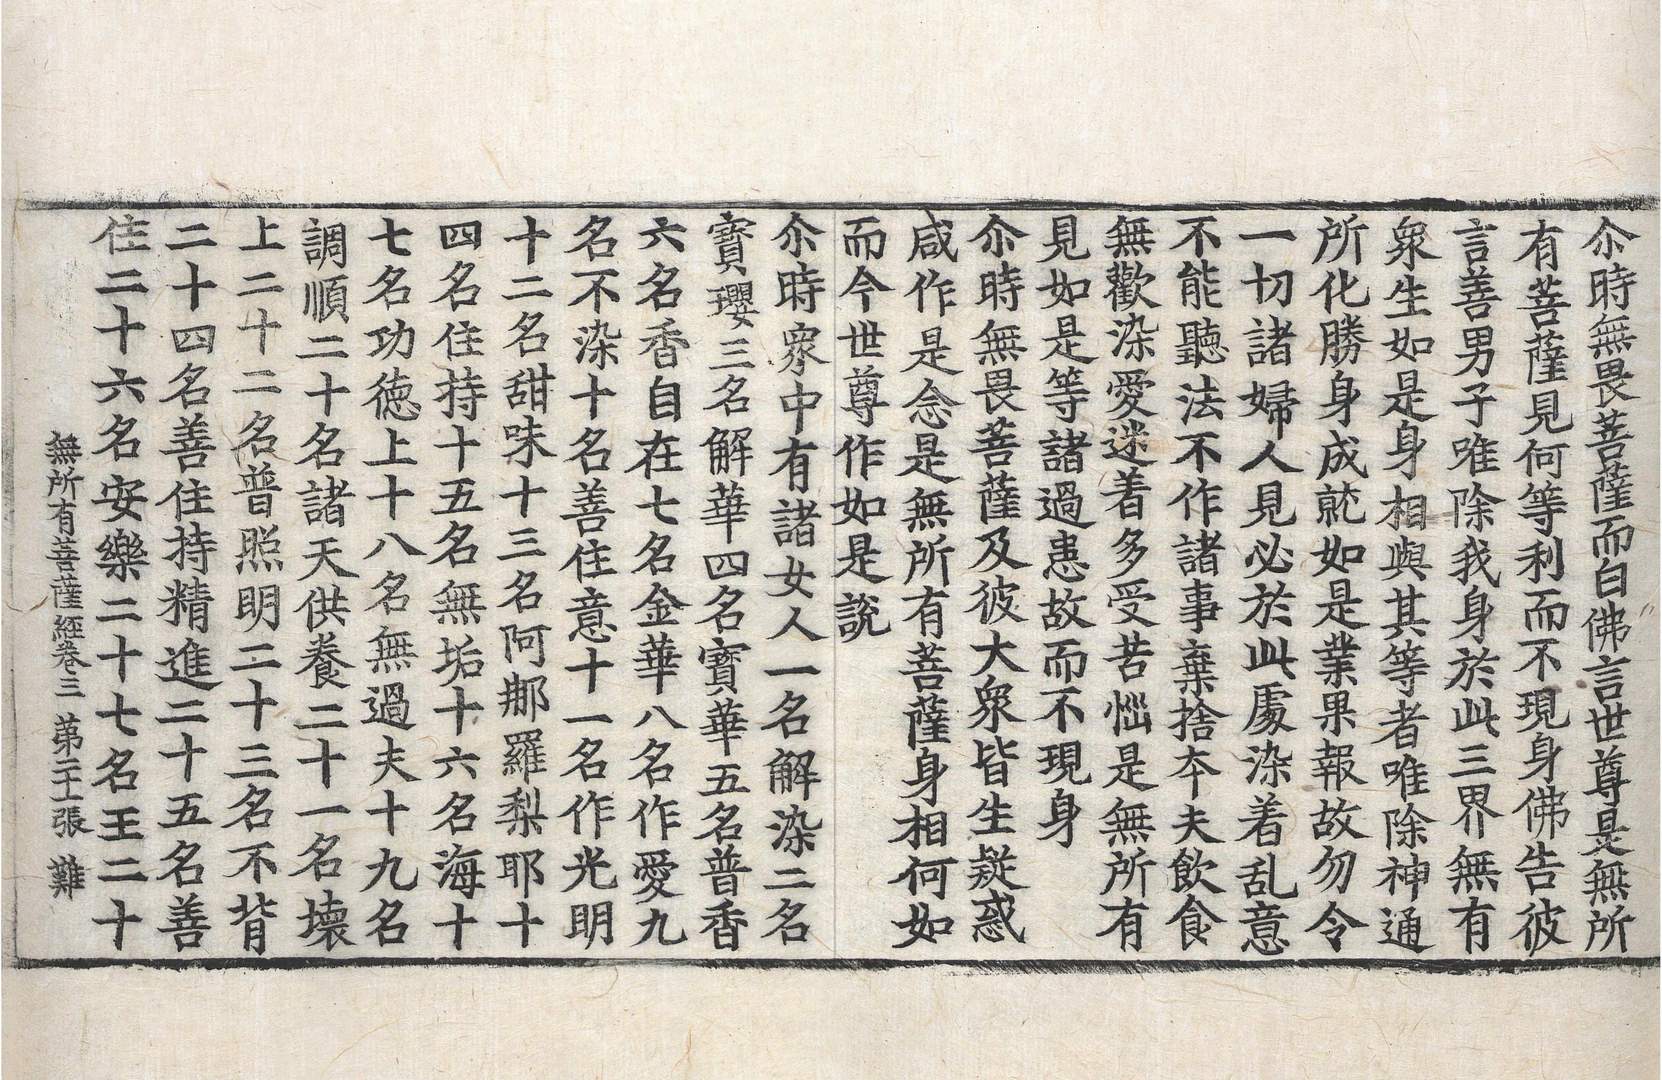 尒時無畏菩薩而白佛言世尊是無所
有菩薩見何等利而不現身佛告彼
言善男子唯除我身於此三界無有
衆生如是身相與其等者唯除神通
所化勝身成就如是業果報故勿令
一切諸婦人見必於此處染着乱意
不能聽法不作諸事棄捨夲夫飲食
無歡染愛迷着多受苦惱是無所有
見如是等諸過患故而不現身
尒時無畏菩薩及彼大衆皆生疑惑
咸作是念是無所有菩薩身相何如
而今世尊作如是說
尒時衆中有諸女人一名解染二名
寶瓔三名解華四名寶華五名普香
六名香自在七名金華八名作愛九
名不染十名善住意十一名作光明
十二名甜味十三名阿那羅梨耶十
四名住持十五名無垢十六名海十
七名功德上十八名無過夫十九名
調順二十名諸天供養二十一名壞
上二十二名普照明二十三名不背
二十四名善住持精進二十五名善
住二十六名安樂二十七名王二十
無所有菩薩經卷三 第二十張 難